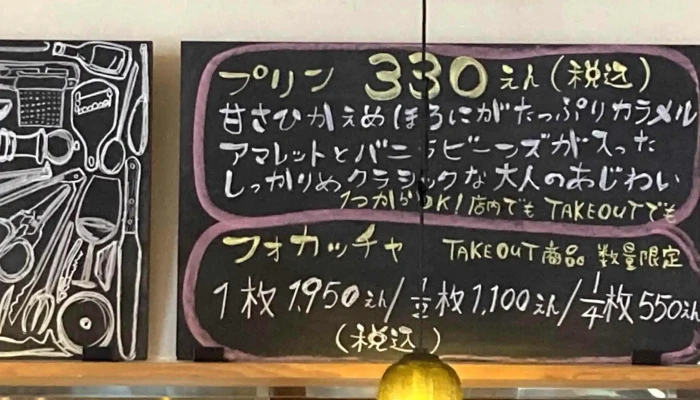 プリン 330えん(税込)
甘さひかえめ ほろにがたっぷりカラメル
アマレットとバニラビーンズが入った
しっかりめクラシックな大人のあじわい
1つからOK!店内でも TAKEOUTでも
フォカッチャ TAKEOUT商品 数量限定
1枚 1,950えん/ 1/2枚 1,100えん/ 1/4枚 550えん
(税込)